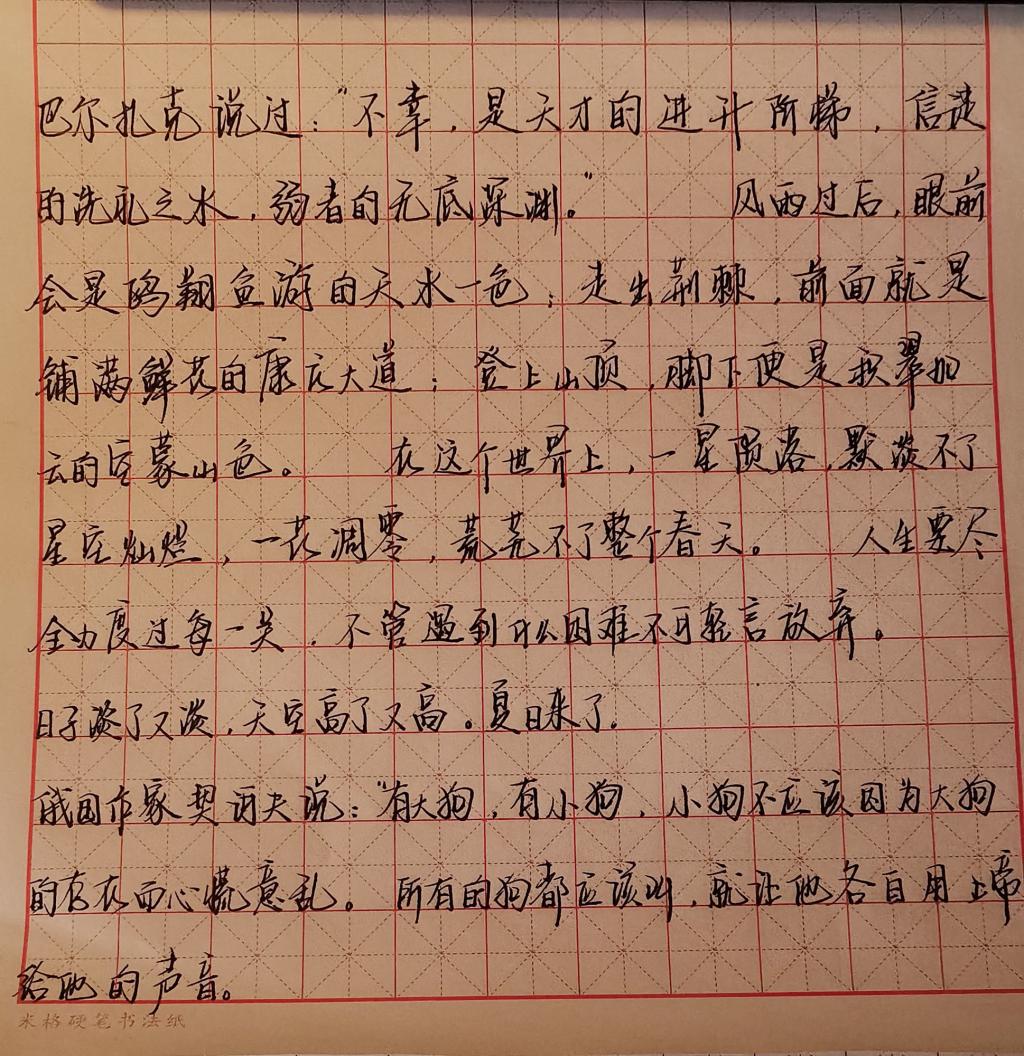 巴尔扎克说过："不幸，是天才的进升阶梯，信徒
的洗礼之水，弱者的无底深渊。" 风雨过后，眼前
会是鸥翔鱼游的天水一色；走出荆棘，前面就是
铺满鲜花的康庄大道；登上山顶，脚下便是积翠如
云的空蒙山色。 在这个世界上，一星陨落，黯淡不了
星空灿烂，一花凋零，荒芜不了整个春天。 人生要尽
全力度过每一关，不管遇到什么困难不可轻言放弃。
日子淡了又淡，天空高了又高。夏日来了.
俄国作家契诃夫说："有大狗，有小狗，小狗不应该因为大狗
的存在而心慌意乱。所有的狗都应该叫，就让他各自用上帝
给他的声音。
米格硬笔书法纸